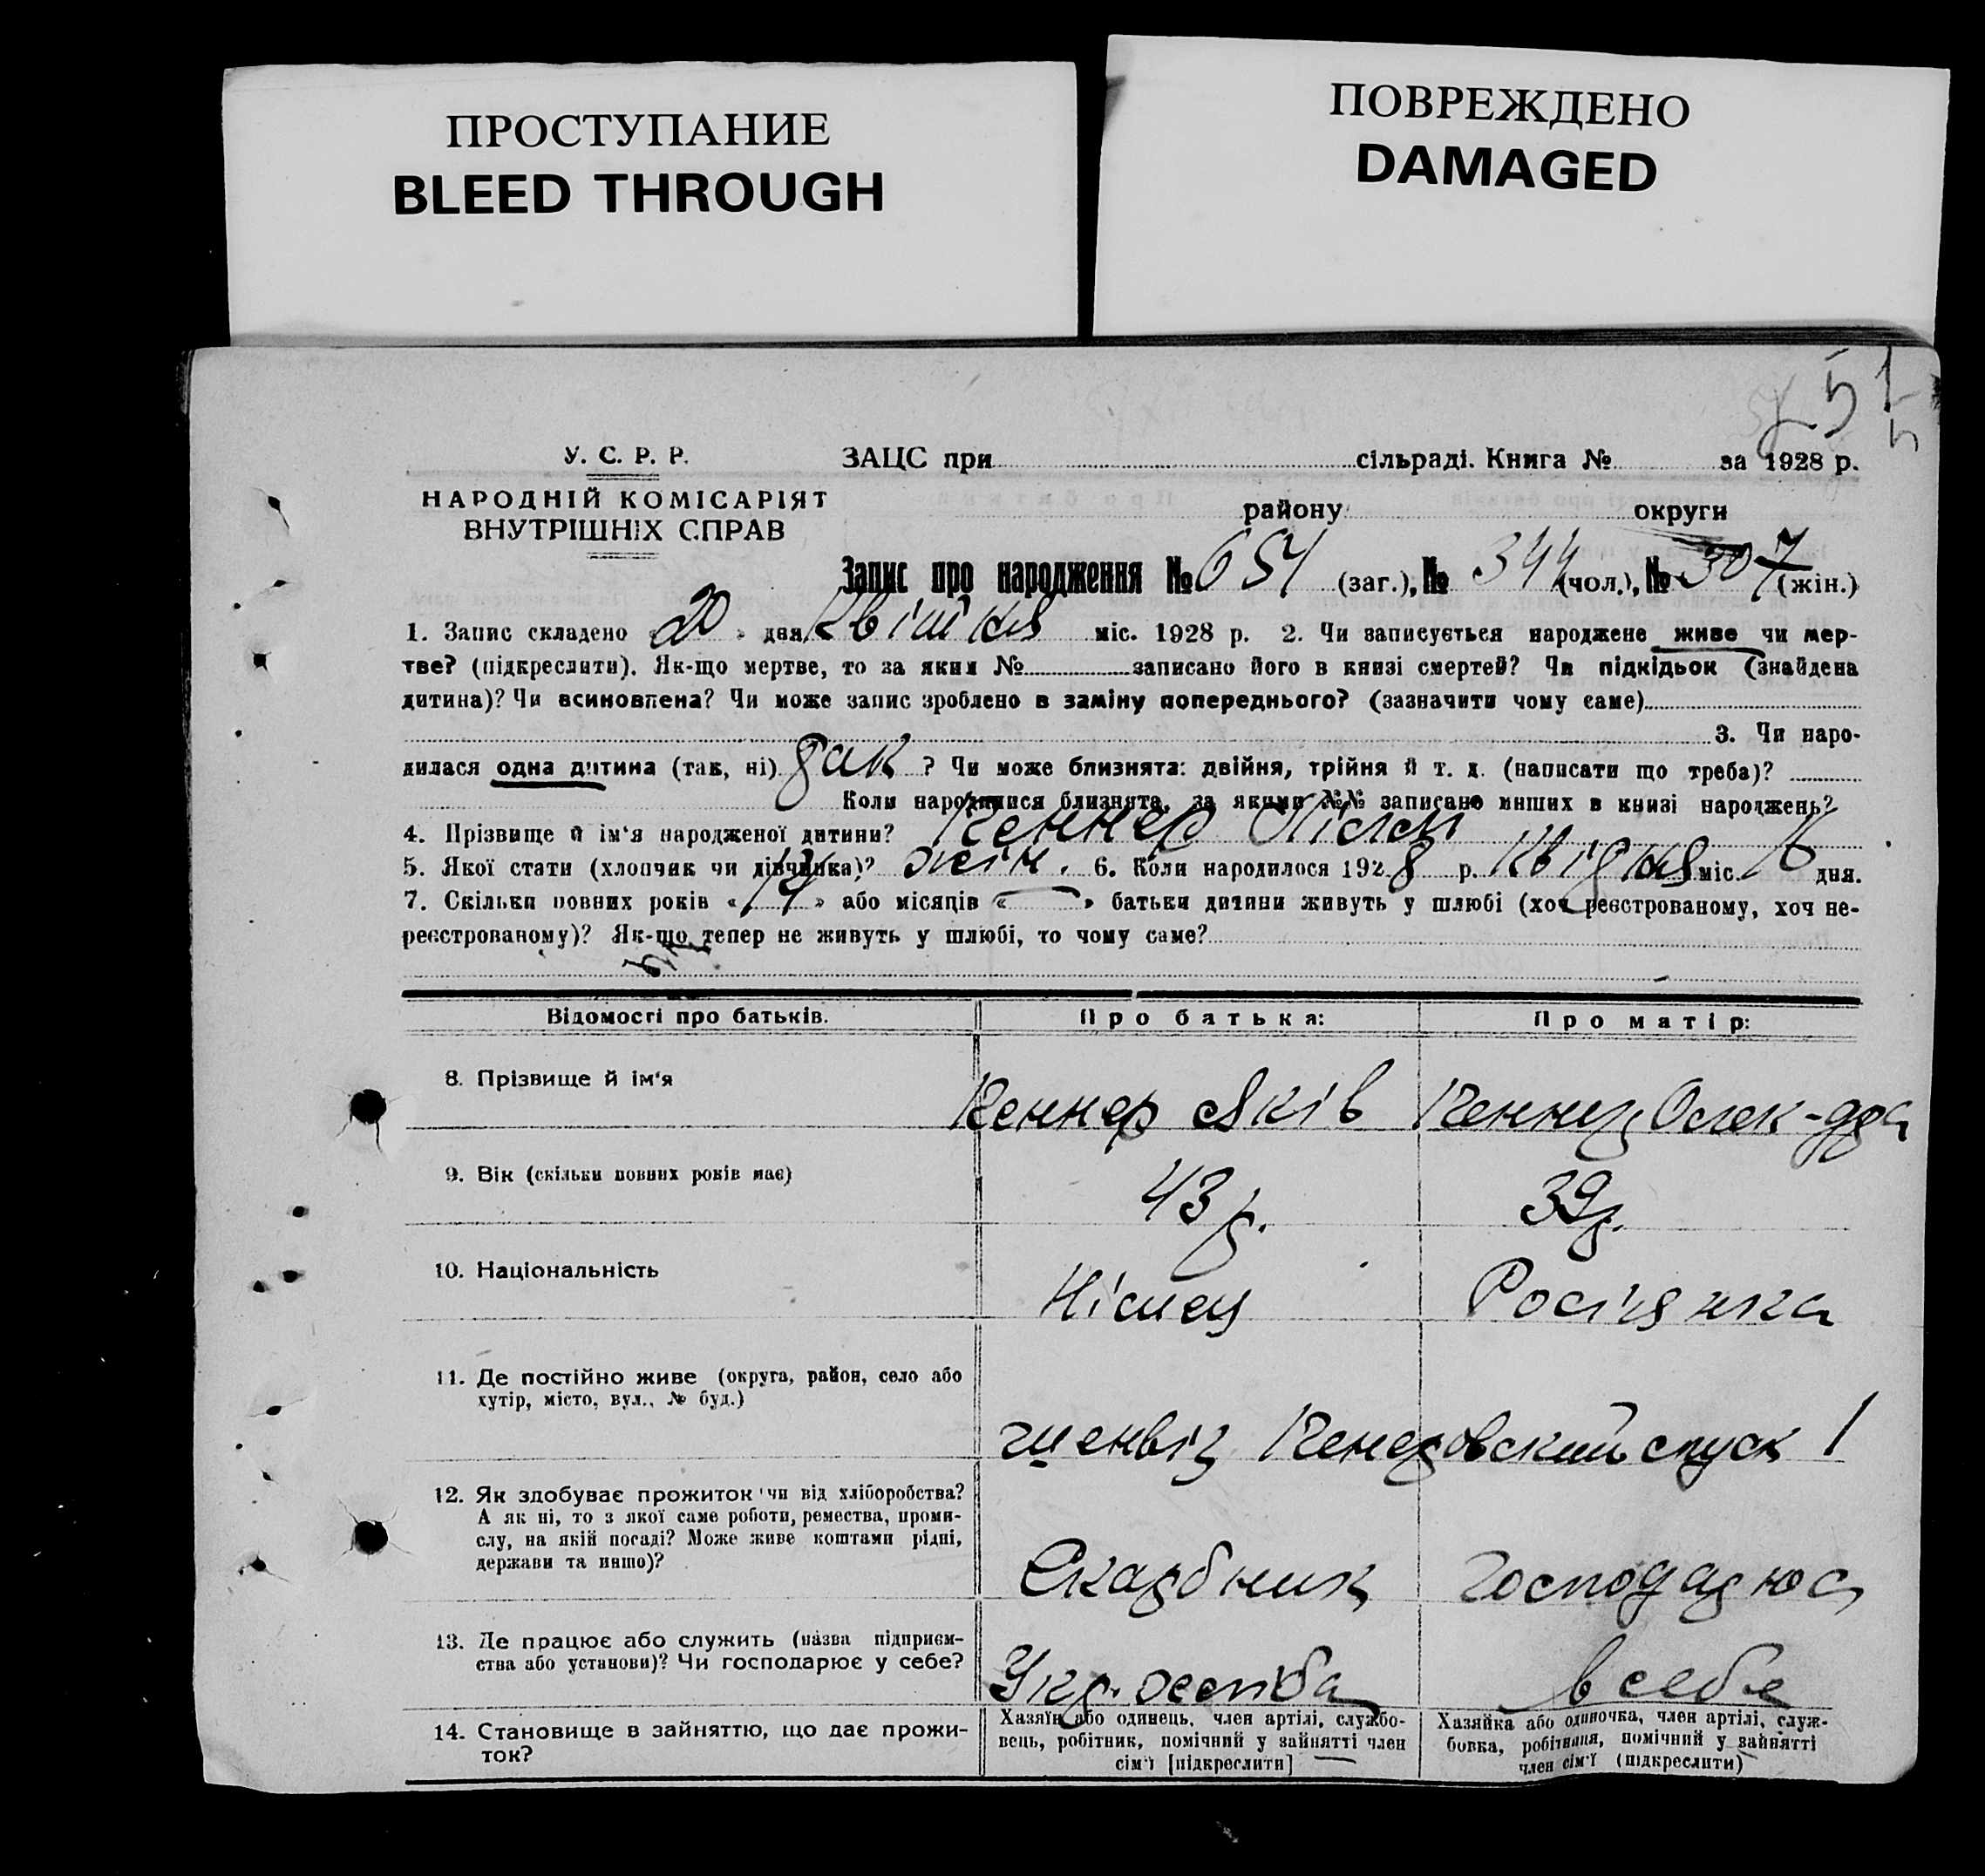 ПРОСТУПАНИЕ
BLEED THROUGH
ПОВРЕЖДЕНО
DAMAGED
У. С. Р. Р.
НАРОДНІЙ КОМІСАРІЯТ
ВНУТРІШНІХ СПРАВ
ЗАЦС при сільраді. Книга № за 1928 р.
району округи
Запис про народження № 651 (заг.), № 344 (чол.), № 307 (жін.)
1. Запис складено 20 дня Квітня міс. 1928 р. 2. Чи записується народжене живе чи мер-
тве? (підкреслити). Як-що мертве, то за яким № записано його в книзі смертей? Чи підкідьок (знайдена
дитина)? Чи всиновлена? Чи може запис зроблено в заміну попереднього? (зазначити чому саме)
3. Чи наро-
дилася одна дитина (так, ні) так ? Чи може близнята: двійня, трійня й т. д. (написати що треба)?
Коли народилися близнята, за якими №№ записано инших в книзі народжень?
4. Прізвище й ім'я народженої дитини? Кеннер Ліля
5. Якої стати (хлопчик чи дівчинка)? жін. 6. Коли народилося 1928 р. Квітня міс. 16 дня.
7. Скільки повних років « 14 » або місяців « — » батьки дитини живуть у шлюбі (хоч реєстрованому, хоч не-
реєстрованому)? Як-що тепер не живуть у шлюбі, то чому саме?
Відомості про батьків. Про батька: Про матір:
8. Прізвище й ім'я Кеннер Яків Кеннер Олек-дра
9. Вік (скільки повних років має) 43 р. 39 р.
10. Національність Німец Росіянка
11. Де постійно живе (округа, район, село або
хутір, місто, вул., № буд.) спуск 1
12. Як здобуває прожиток чи від хліборобства?
А як ні, то з якої саме роботи, ремества, проми-
слу, на якій посаді? Може живе коштами рідні,
держави та иншо)? Скарбник Господарює
13. Де працює або служить (назва підприєм-
ства або установи)? Чи господарює у себе? в себе
14. Становище в зайняттю, що дає прожи-
ток?
Хазяїн або одинець, член артілі, службо-
вець, робітник, помічний у зайнятті член
сім'ї [підкреслити]
Хазяйка або одиночка, член артілі, служ-
бовка, робітниця, помічний у зайнятті
член сім'ї (підкреслити)